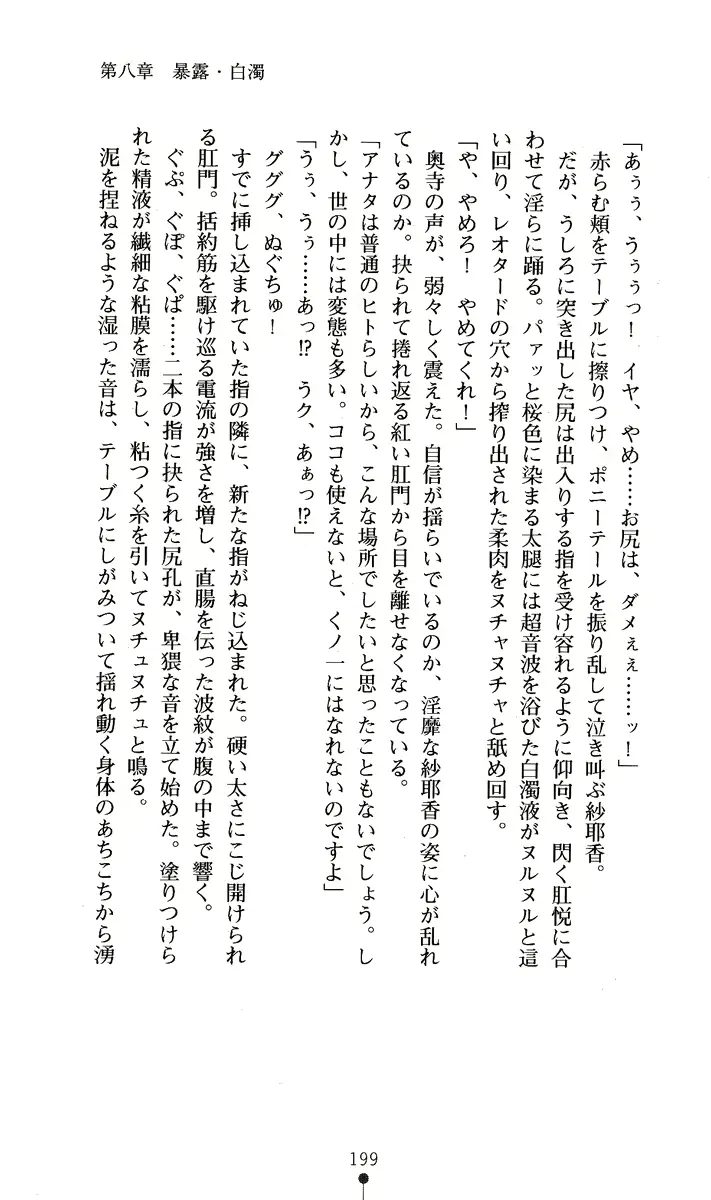 第八章　暴露・白濁
「あぅぅ、うぅぅっ！　イヤ、やめ……お尻は、ダメぇぇ……ッ！」
赤らむ頬をテーブルに擦りつけ、ポニーテールを振り乱して泣き叫ぶ紗耶香。
だが、うしろに突き出した尻は出入りする指を受け容れるように仰向き、閃く肛悦に合
わせて淫らに踊る。パァッと桜色に染まる太腿には超音波を浴びた白濁液がヌルヌルと這
い回り、レオタードの穴から搾り出された柔肉をヌチャヌチャと舐め回す。
「や、やめろ！　やめてくれ！」
奥寺の声が、弱々しく震えた。自信が揺らいでいるのか、淫靡な紗耶香の姿に心が乱れ
ているのか。抉られて捲れ返る紅い肛門から目を離せなくなっている。
「アナタは普通のヒトらしいから、こんな場所でしたいと思ったこともないでしょう。し
かし、世の中には変態も多い。ココも使えないと、くノ一にはなれないのですよ」
「うぅ、うぅ……あっ!?　うク、あぁっ!?」
グググ、ぬぐちゅ！
すでに挿し込まれていた指の隣に、新たな指がねじ込まれた。硬い太さにこじ開けられ
る肛門。括約筋を駆け巡る電流が強さを増し、直腸を伝った波紋が腹の中まで響く。
ぐぷ、ぐぽ、ぐぱ……二本の指に抉られた尻孔が、卑猥な音を立て始めた。塗りつけら
れた精液が繊細な粘膜を濡らし、粘つく糸を引いてヌチュヌチュと鳴る。
泥を捏ねるような湿った音は、テーブルにしがみついて揺れ動く身体のあちこちから湧
199